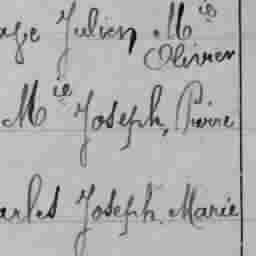 age Julien Mie
Olivier
Mie Joseph, Pierre
arles Joseph Marie